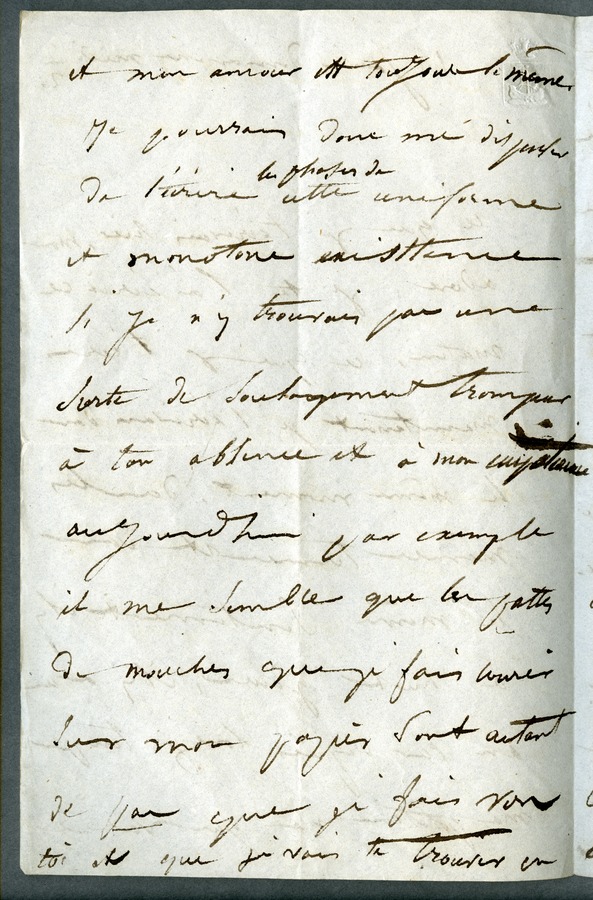 et mon amour est toujours le même.
Je pourrais donc me dispenser
de t'écrire les phases de cette uniforme
et monotone existtence
si je n'y trouvais pas une
sorte de soulagement trompeur
à ton absence et à mon impatience
aujourd'hui par exemple
il me semble que les pattes
de mouches que je fais courir
sur mon papier sont autant
de pas que je fais vers
toi et que je vais te trouver en